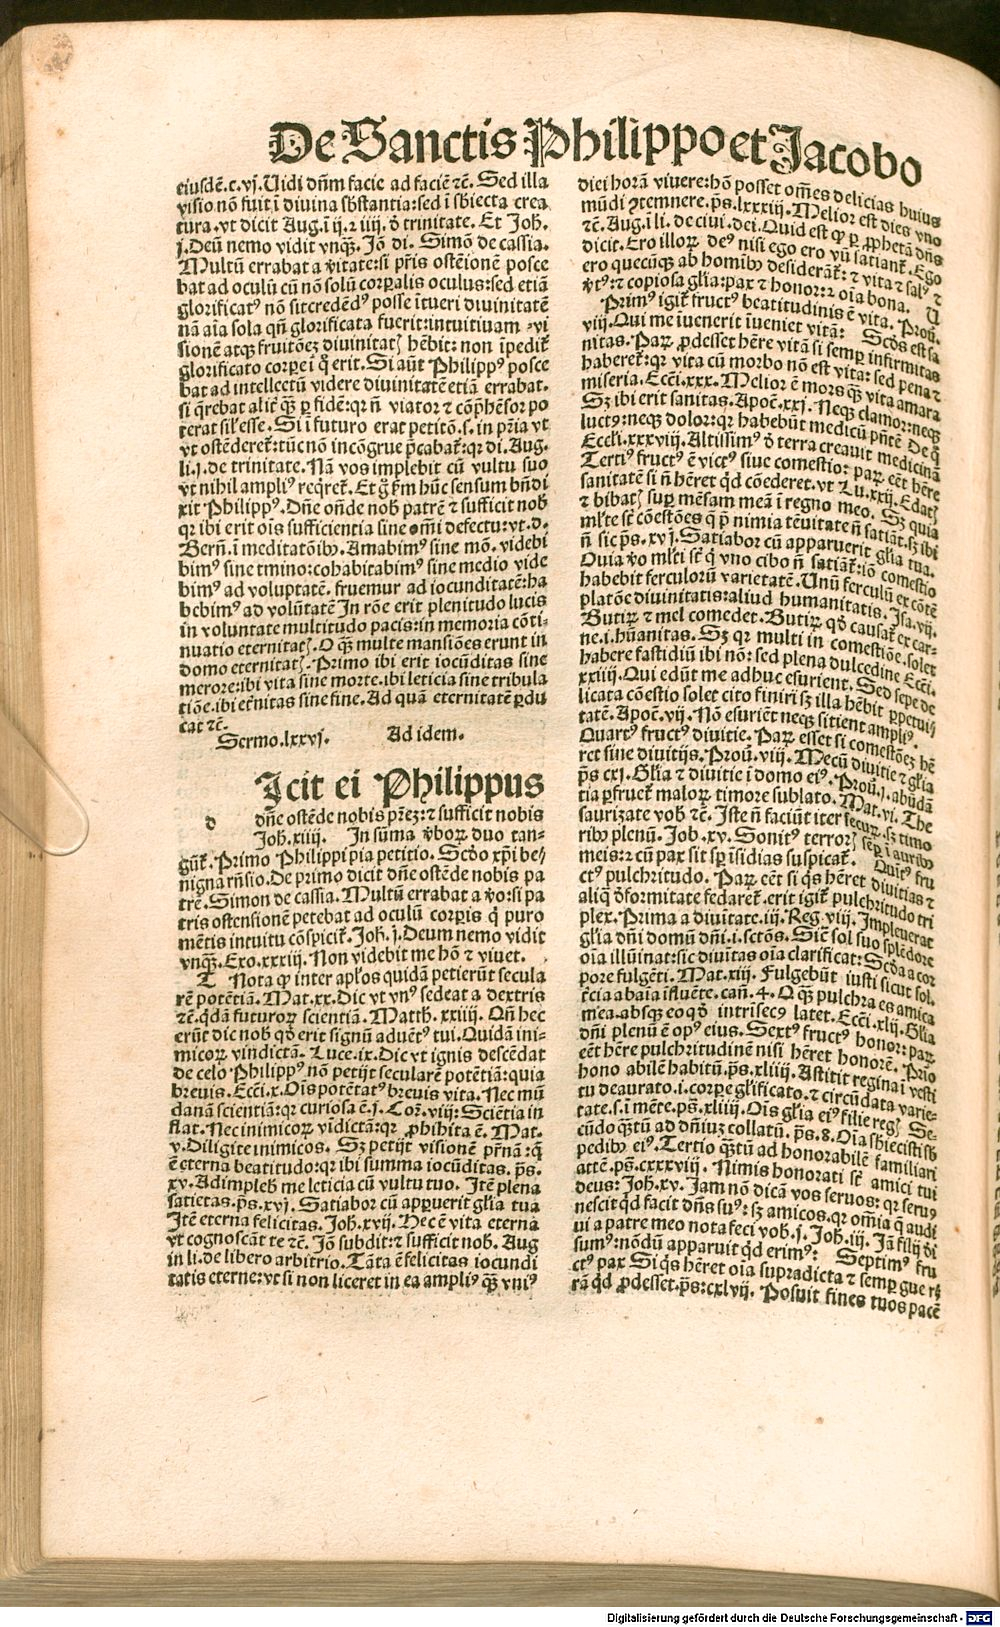 De Sanctis Philippo et Jacobo
eiusdē.c.vj.Uidi dñm facie ad faciē ⁊c. Sed illa
visio nō fuit ī divina sb̄stantia:sed ī sb̄iecta crea
tura.vt dicit Aug.ī ij.⁊ iiij.ð trinitate. Et Joh.
j.Deū nemo vidit vnqꝫ. Jō di. Simō de cassia.
Multū errabat a v̄itate:si pr̄is ostēionē posce
bat ad oculū cū nō solū corꝑalis oculus:sed etiā
glorificatꝰ nō sit credēdꝰ posse ītueri divinitatē
nā aīa sola qn̄ glorificata fuerit:intuitiuam vi
sionē atqꝫ fruitōeꝫ divinitatꝭ hēbit: non īpedit᷑
glorificato corꝑe ī q̊ erit. Si aūt Philippꝰ posce
bat ad intellectū videre divinitatē etiā errabat.
si q̄rebat alit᷑ qꝫ ꝑ fidē:qꝛ ñ viator ⁊ cōp̄hēsor po
terat sil̓ esse. Si ī futuro erat petitō.s. in pr̄ia vt
vt ostēderet᷑:tūc nō incōgrue p̄cabat᷑:qꝛ di. Aug.
li.j.de trinitate. Nā vos implebit cū vultu suo
vt nihil ampliꝰ reqret᷑. Et g̊ ẜm hūc sensum bn̄ di
xit Philippꝰ. Dñe oñde nob̓ patrē ⁊ sufficit nob̓
qꝛ ibi erit oīs sufficientia sine om̄i defectu:vt.d.
Bern̄.ī meditatōibꝰ. Amabimꝰ sine mō. videbi
bimꝰ sine tmino:cohabitabimꝰ sine medio vide
bimꝰ ad voluptatē. fruemur ad iocunditatē:ha
bebimꝰ ad volūtatē In rōe erit plenitudo lucis
in voluntate multitudo pacis:in memoria cōti-
nuatio eternitatꝭ.O qꝫ multe mansiōes erunt in
domo eternitatꝭ. Primo ibi erit iocūditas sine
merore:ibi vita sine morte.ibi leticia sine tribula
tiōe.ibi et̓nitas sine fine. Ad quā eternitatē ꝑdu
cat ⁊c.
Sermo.lxxvj. Ad idem.
Icit ei Philippus
d dñe ostēde nobis pr̄eꝫ:⁊ sufficit nobis
Joh.xiiij. In sūma v̓boꝝ duo tan-
gūt᷑. Primo Philippi pia petitio. Scd̄o xp̄i be-
nigna rn̄sio. De primo dicit dñe ostēde nobis pa
trē. Simon de cassia. Multū errabat a v̓o:si pa
tris ostensionē petebat ad oculū corꝑis q̄ puro
mētis intuitu cōspicit᷑.Joh.j.Deum nemo vidit
vnqꝫ.Exo.xxxiij.Non videbit me hō ⁊ viuet.
T Nota ꝙ inter apl̓os quidā petierūt secula
rē potētiā. Mat.xx. Dic vt vnꝰ sedeat a dextris
⁊c.q̄dā futuroꝝ scientiā. Matth.xxiiij. Qñ hec
erūt dic nob̓ qd̓ erit signū aduētꝰ tui. Quidā ini-
micoꝝ vindictā. Luce.ix. Dic vt ignis descēdat
de celo Philippꝰ nō petijt secularē potētiā:quia
breuis. Ecci.x.Oīs potētatꝰ breuis vita. Nec mū
danā scientiā:qꝛ curiosa ē.j. Coꝛ.viij:Sciētia in
flat. Nec inimicoꝝ vīdictā:qꝛ ꝓhibita ē. Mat.
v.Diligite inimicos. Sꝫ petijt visionē pr̄nā:q̄
ē eterna beatitudo:qꝛ ibi summa iocūditas. ps̄.
xv.Adimpleb̓ me leticia cū vultu tuo. Itē plena
satietas.ps̄.xvj. Satiabor cū apparuerit gl̓ia tua
Itē eterna felicitas. Joh.xvij. Hec ē vita eterna
vt cognoscāt te ⁊c. Jō subdit:⁊ sufficit nob̓. Aug
in li.de libero arbitrio. Tāta ē felicitas iocundi
tatis eterne:vt si non liceret in ea ampliꝰ qꝫ vniꝰ
diei horā viuere:hō posset om̄es delicias huius
mūdi ꝯtemnere.ps̄.lxxxiij. Melior est dies vno
⁊c. Aug.ī li. de ciui. dei. Quid est ꝙ ꝑ ꝓphetā dñs
dicit. Ero illoꝝ deꝰ nisi ego ero vn̄ satiant᷑. Ego
ero quecūqꝫ ab homībꝰ desiderāt᷑: ⁊ vita ⁊ salꝰ ⁊
vt̓ꝰ:⁊ copiosa gl̓ia:pax ⁊ honor:⁊ oīa bona. U
Primꝰ igit᷑ fructꝰ beatitudinis ē vita. Prou̅.
viij. Qui me īuenerit īueniet vitā: Scd̓s est sa
nitas. Paꝝ ꝓdesset hēre vitā si semꝑ infirmitas
haberet᷑:qꝛ vita cū morbo nō est vita: sed pena ⁊
miseria. Ecci.xxx. Melior ē mors qꝫ vita amara
Sꝫ ibi erit sanitas. Apoē.xxj. Neqꝫ clamor:neqꝫ
luctꝰ:neqꝫ dolor:qꝛ habebūt medicū pn̄tē De q̊
Eccli.xxxviij. Altissimꝰ ð terra creauit medicinā
Tertiꝰ fructꝰ ē victꝰ siue comestio: paꝝ eēt hēre
sanitatē si ñ hēret qd̓ cōederet. vt Lu.xxij. Edatꝭ
⁊ bibatꝭ suꝑ mēsam meā ī regno meo. Sꝫ quia
ml̓te sc̄ cōestōes q̄ p̄ nimia tēuitate ñ satiāt.sꝫ ibi
ñ sic ps̄.xvj. Satiabor cū apparuerit gl̓ia tua.
Quia v̓o ml̓ti sc̄ q̄ vno cibo ñ satiāt᷑:iō comestio
habebit ferculorū varietatē. Unū ferculū ex cōtē
platōe divinitatis:aliud humanitatis. Isa.vij.
Butiꝝ ⁊ mel comedet. Butiꝝ qd̓ causat᷑ ex car-
ne.i.hūanitas. Sꝫ qꝛ multi in comestiōe. solet
habere fastidiū ibi nō: sed plena dulcedine Ecci.
xxiiij. Qui edūt me adhuc esurient. Sed sepe de
licata cōestio solet cito finiri sꝫ illa hēbit ꝑpetui
tatē. Apoē.vij. Nō esuriēt neqꝫ sitient ampliꝰ.
Quartꝰ fructꝰ divitie. Paꝝ esset si comestōeꝫ hē
ret sine divitijs. Prou̅.viij. Mecū divitie ⁊ gl̓ia
ps̄ cxj. Gl̓ia ⁊ divitie ī domo eiꝰ. Prou̅.j. abūdā
tia ꝑfruet᷑ maloꝝ timore sublato. Mat.vi. The
saurizate vob̓ ⁊c. Iste ñ faciūt iter secuꝝ.sꝫ timo
ribꝰ plenū. Job.xv. Sonitꝰ terrorꝭ sēꝑ ī auribꝰ
meis:⁊ cū pax sit sꝑ īsidias suspicat᷑. Quītꝰ fru
ctꝰ pulchritudo. Paꝝ eēt si q̓s hēret divitias ⁊
aliq̄ ðformitate fedaret᷑.erit igit᷑ pulchritudo tri
plex. Prima a diuītate.iij. Reg.viij. Impleuerat
gl̓ia dñi domū dñi.i.sctōs. Sic̄ sol suo splēdore
oīa illūinat:sic diuītas oīa clarificat: Scd̓a a cor
pore fulgēti. Mat.xiij. Fulgebūt iusti sicut sol.
t̓cia ab aīa īfluēte. can̄.4. O qꝫ pulchra es amica
mea.absqꝫ eo qd̓ intrīsecꝰ latet. Ecci.xlij. Gl̓ia
dñi plenū ē opꝰ eius. Sextꝰ fructꝰ honor: paꝝ
eēt hēre pulchritudinē nisi hēret honorē. Prio
hono abilē habitū.ps̄.xliiij. Astitit regina ī vesti
tu deaurato.i.corꝑe gl̓ificato.⁊ circūdata varie-
tate.s.ī mēte.ps̄.xliiij. Oīs gl̓ia eiꝰ filie regꝭ Se-
cūdo q̄tū ad dn̄iuꝫ collatū. ps̄.8. Oīa sb̄iecisti sb̄
pedibꝰ eiꝰ. Tertio q̄tū ad honorabilē familiari
atē.ps̄.cxxxviij. Nimis honorati sc̄ amici tui
deus: Joh.xv. Jam nō dicā vos seruos: qꝛ seruꝰ
nescit qd̓ facit dñs suꝰ: sꝫ amicos.qꝛ om̄ia q̄ audi
ui a patre meo nota feci vob̓.j. Joh.iij. Jā filij d̓i
sumꝰ:nōdū apparuit qd̓ erimꝰ: Septimꝰ fru
ctꝰ pax Si q̓s hēret oīa supradicta ⁊ semꝑ guerꝭ
rā qd̓ ꝓdesset.ps̄:cxlvij. Posuit fines tuos pacē
Digitalisierung gefördert durch die Deutsche Forschungsgemeinschaft - DFG